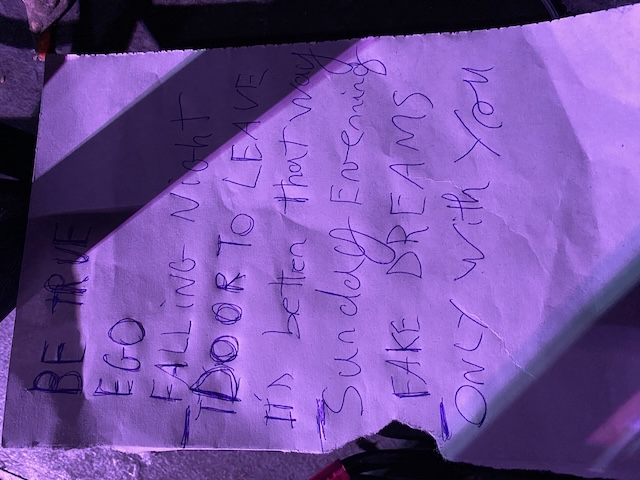 BE TRUE
EGO
FALLING NIGHT
DOOR TO LEAVE
it's better that way
Sunday Evening
FAKE DREAMS
ONLY with You